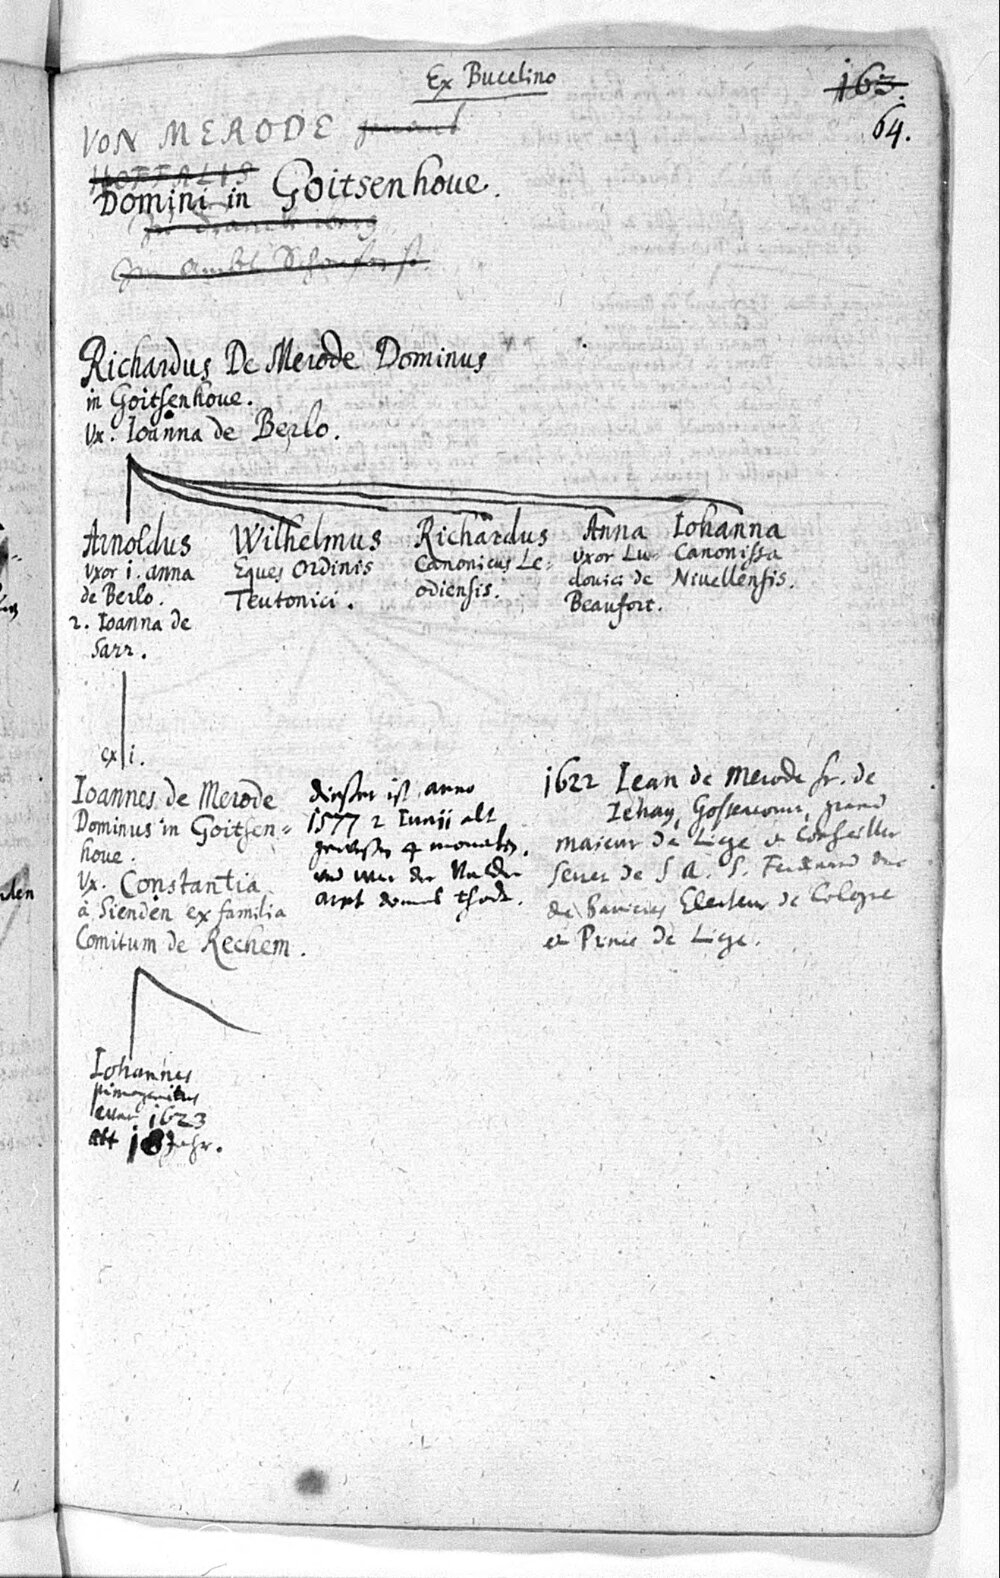 Ex Bucelino
163.
64.
VON MERODE
HOFFALIS
Domini in Goitsenhoue.
Richardus De Merode Dominus
in Goitsenhoue.
Vx. Ioanna de Berlo.
Arnoldus
vxor 1. anna
de Berlo.
2. Ioanna de
Sarr.
Wilhelmus
Eques Ordinis
Teutonici.
Richardus
Canonicus Le-
odiensis.
Anna
vxor Lu-
douici de
Beaufort.
Iohanna
Canonissa
Niuellensis.
ex 1.
Ioannes de Merode
Dominus in Goitsen-
houe.
Vx. Constantia
à Sienden ex familia
Comitum de Rechem.
dieser ist anno
1577 2 Iunii alt
gewesen 4 monaten.
und war der
domals thodt.
1622 Iean de Merode sr. de
Iehay, grand
maieur de Liege et Conseiller
de S A. S. Ferdinand duc
de Electeur de Cologne
et Prince de Liege.
Iohannes
primogenitus
1623
alt 18 Jahr.